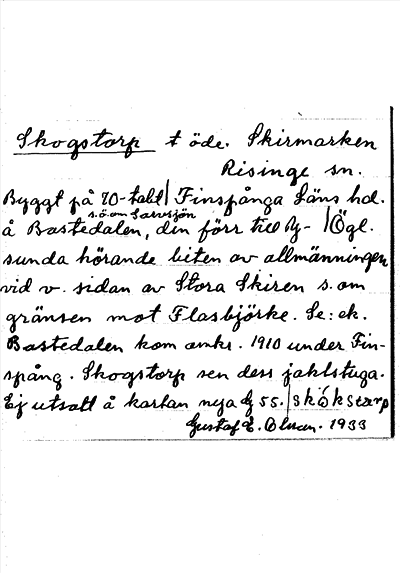 Skogstorp t öde. Skirmarken
Risinge sn.
Byggt på 70-talet | Finspånga Läns hd.
s.ö om Larvsjön
å Bastedalen, den förr till Y- | Ögl.
sunda hörande biten av allmänningen
vid v. sidan av Stora Skiren s.om
gränsen mot Flasbjörke. Se: ek.
Bastedalen kom omkr. 1910 under Fin-
spång. Skogstorp sen dess jaktstuga.
Ej utsatt å kartan nya G 55. | skókstærp
Gustaf E. Olsson. 1933